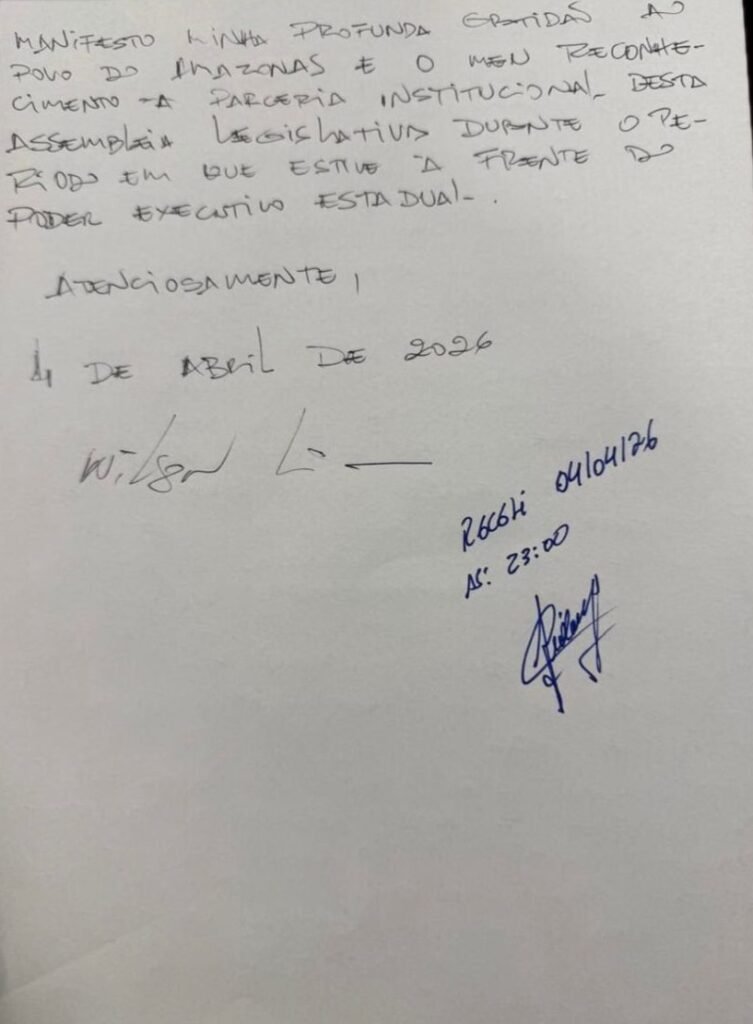 MANIFESTO MINHA PROFUNDA GRATIDÃO AO
POVO DO AMAZONAS E O MEU RECONHE-
CIMENTO A PARCERIA INSTITUCIONAL DESTA
ASSEMBLEIA LEGISLATIVA DURANTE O PE-
RÍODO EM QUE ESTIVE À FRENTE DO
PODER EXECUTIVO ESTADUAL.
ATENCIOSAMENTE,
4 DE ABRIL DE 2026
Wilson Li
RECEBI 04/04/26
AS: 23:00